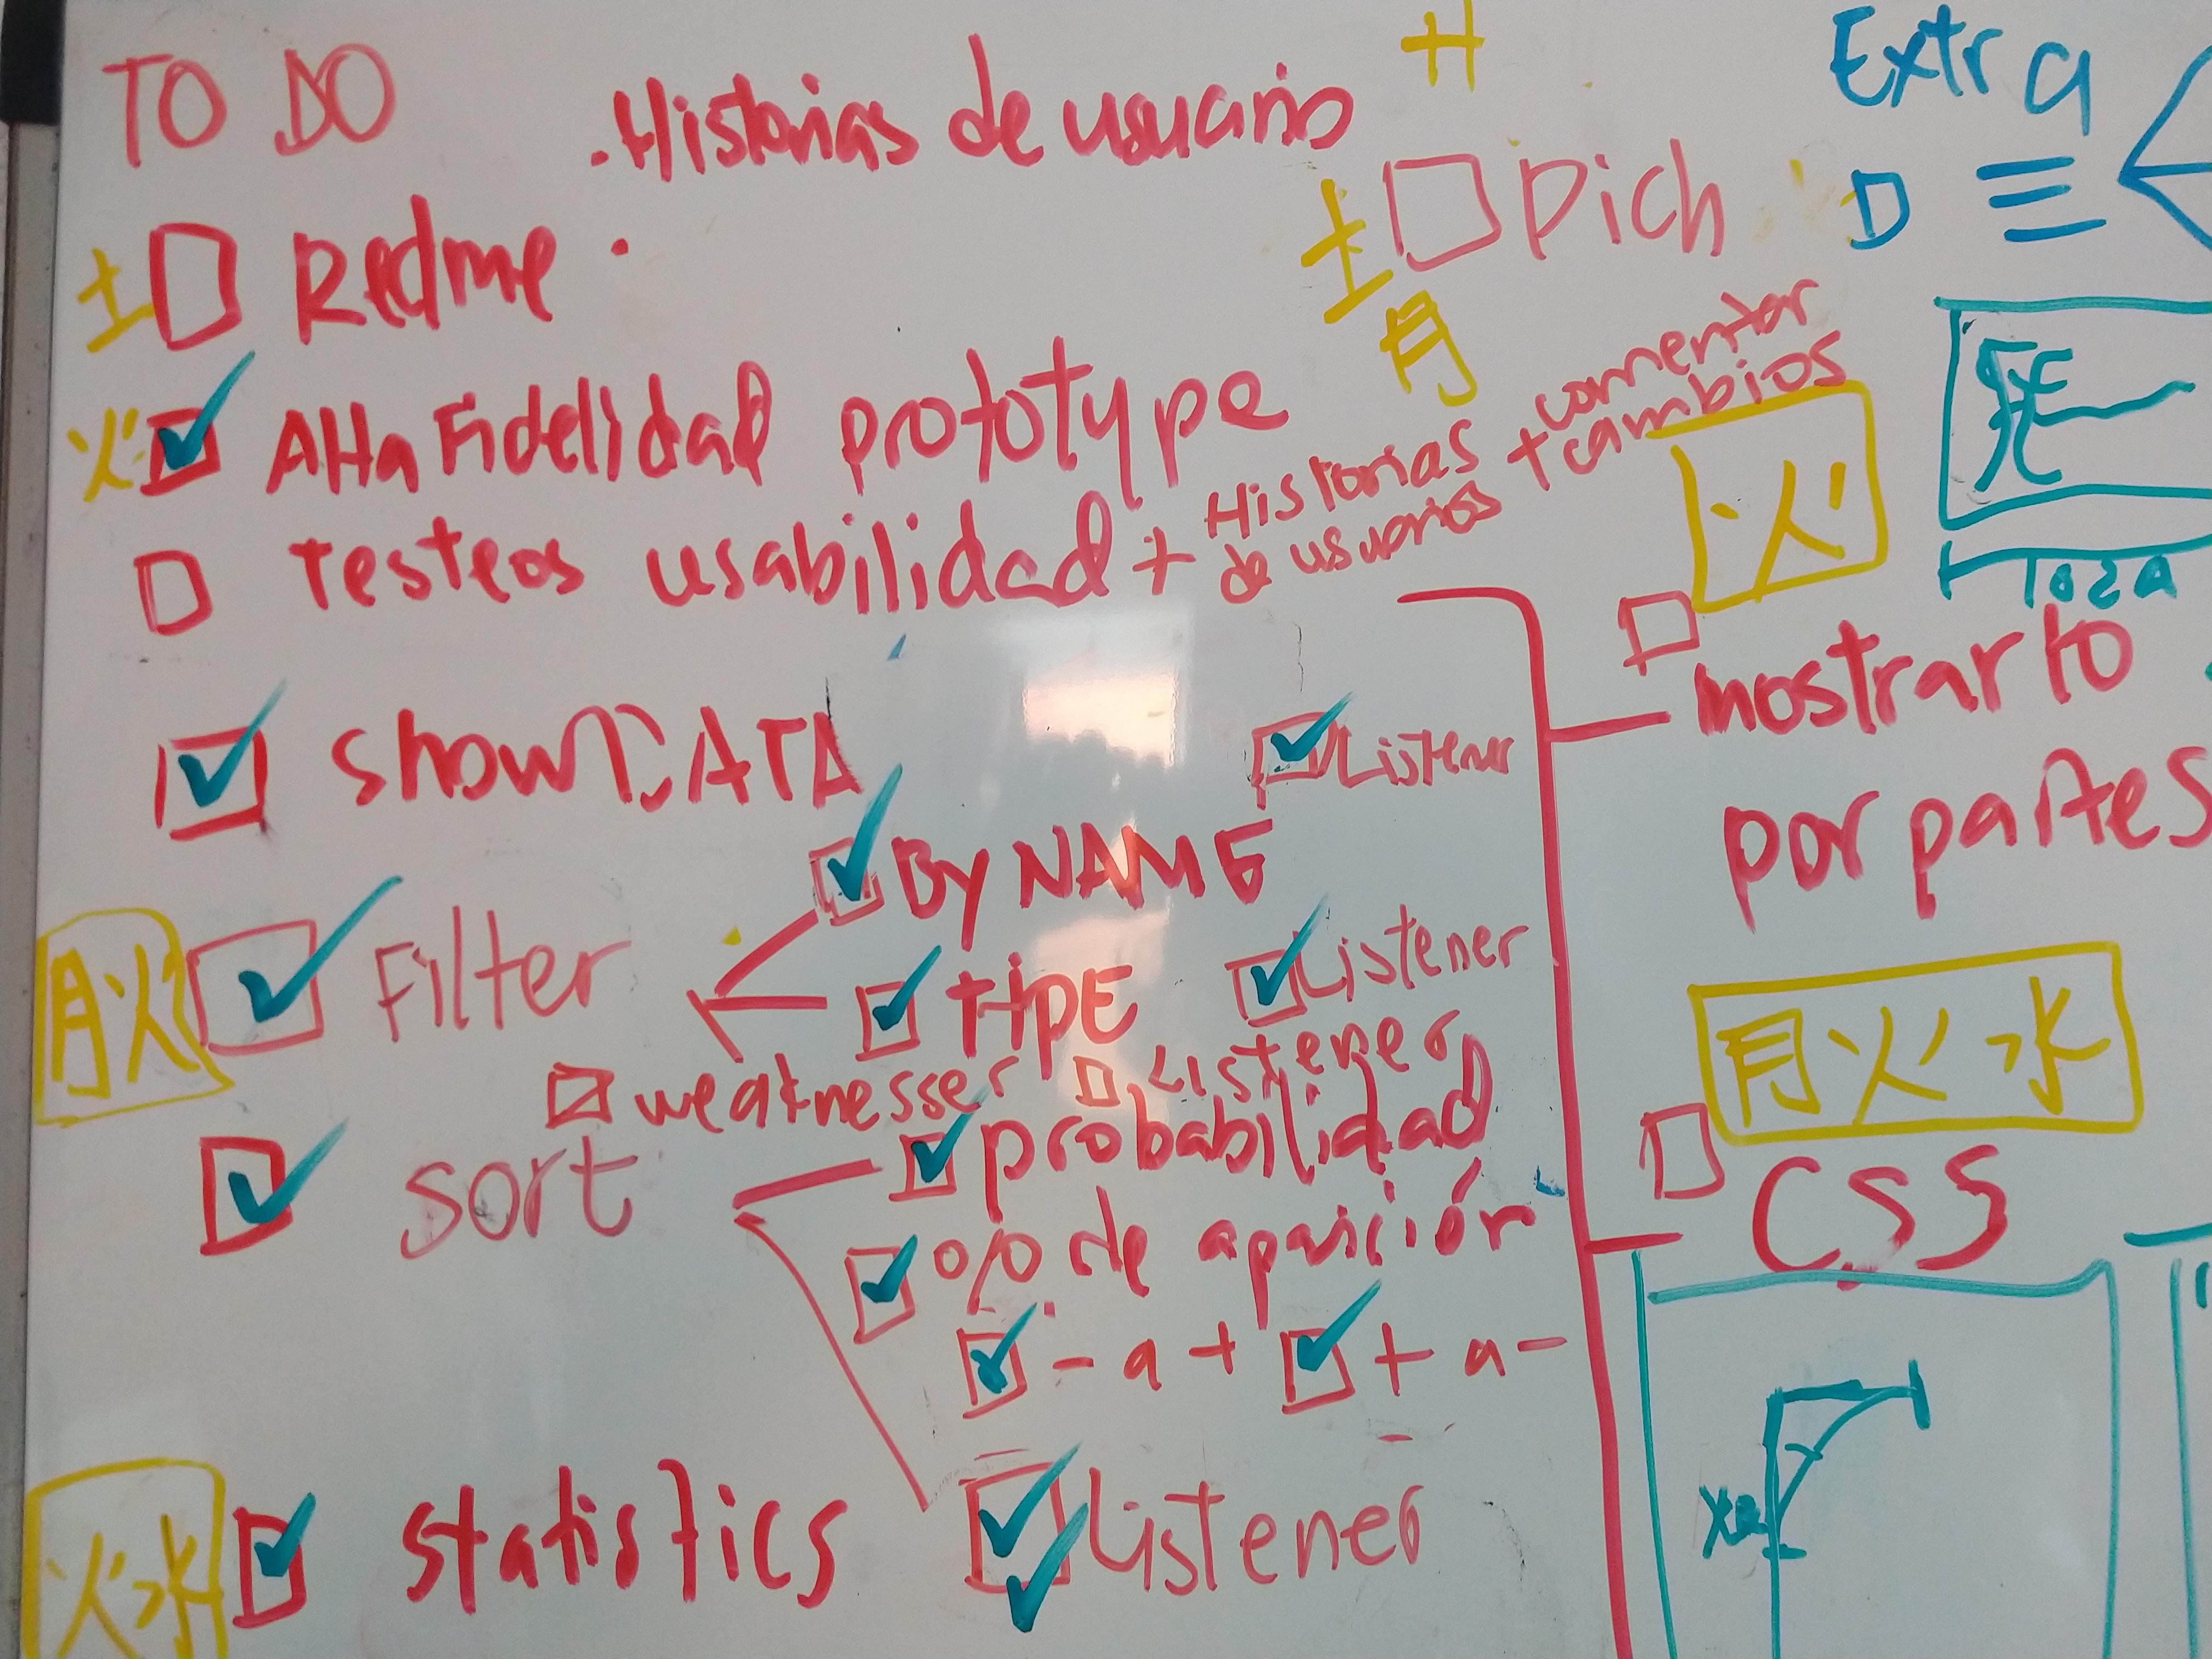 TO DO
. Historias de usuario
土 Redme .
火 Alta Fidelidad prototype
Testeos usabilidad + Historias de usuarios + comentar cambios
showDATA
Listener
BY NAME
月火 Filter
tipE
Listener
weaknesses
Listener
sort
probabilidad
% de aparición
- a +
+ a -
火水 statistics
Listener
土 Pich
月
火
mostrarlo
por partes
月火水
CSS
Extra